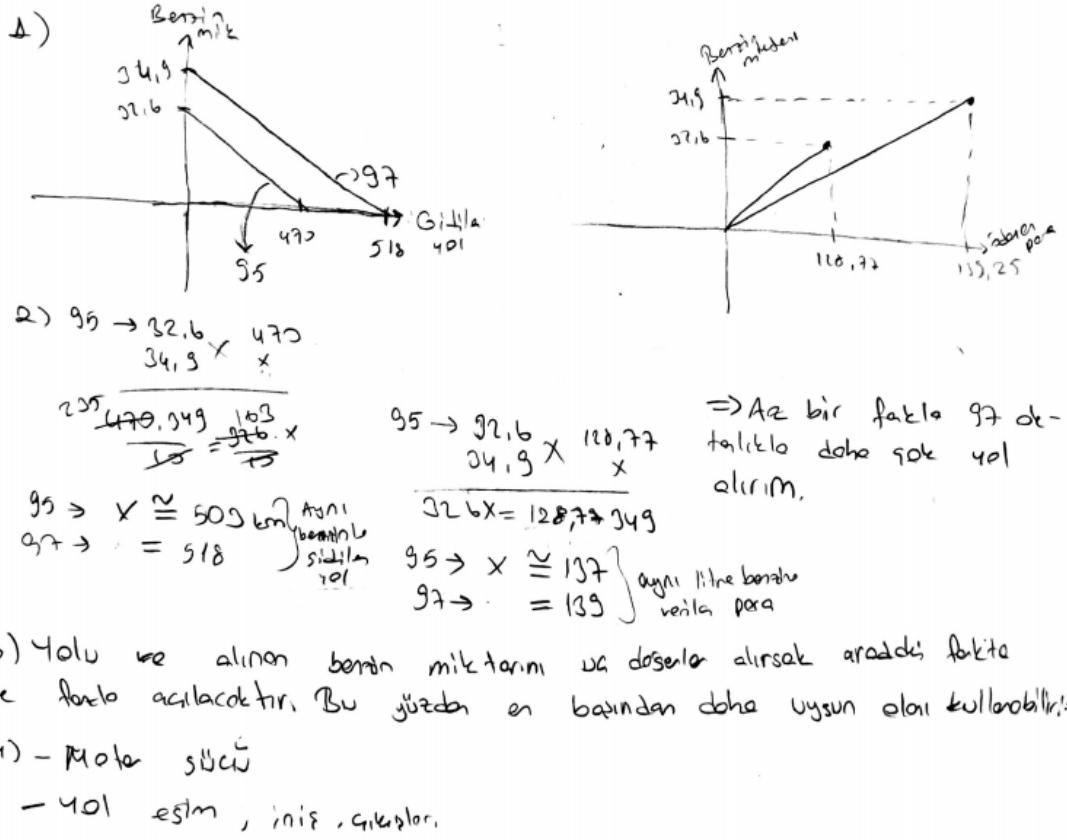 1)
Benzin
mik
34,9
32,6
→97
470
518
Gidila
yol
95
Benzin
34,9
32,6
128,77
139,25
ödenen
para
2) 95 → 32,6 x 470
34,9 x
235 470.349 = 163 326.x
95 → x ≅ 503 km
97 → = 518
Aynı
benzinle
gidilen
yol
95 → 32,6 x 128,77
34,9 x
326x = 128,77 349
95 → x ≅ 137
97 → = 139
aynı litre benzine
verilen para
⇒ Az bir fakla 97 ok-
tanlıkla daha çok yol
alırım.
) Yolu ve alınan benzin miktarını uç değerler alırsak aradaki farkta
fazla açılacaktır. Bu yüzden en başından daha uygun olanı kullanabiliriz
) - Moto gücü
- yol eğim, iniş, çıkışlar.